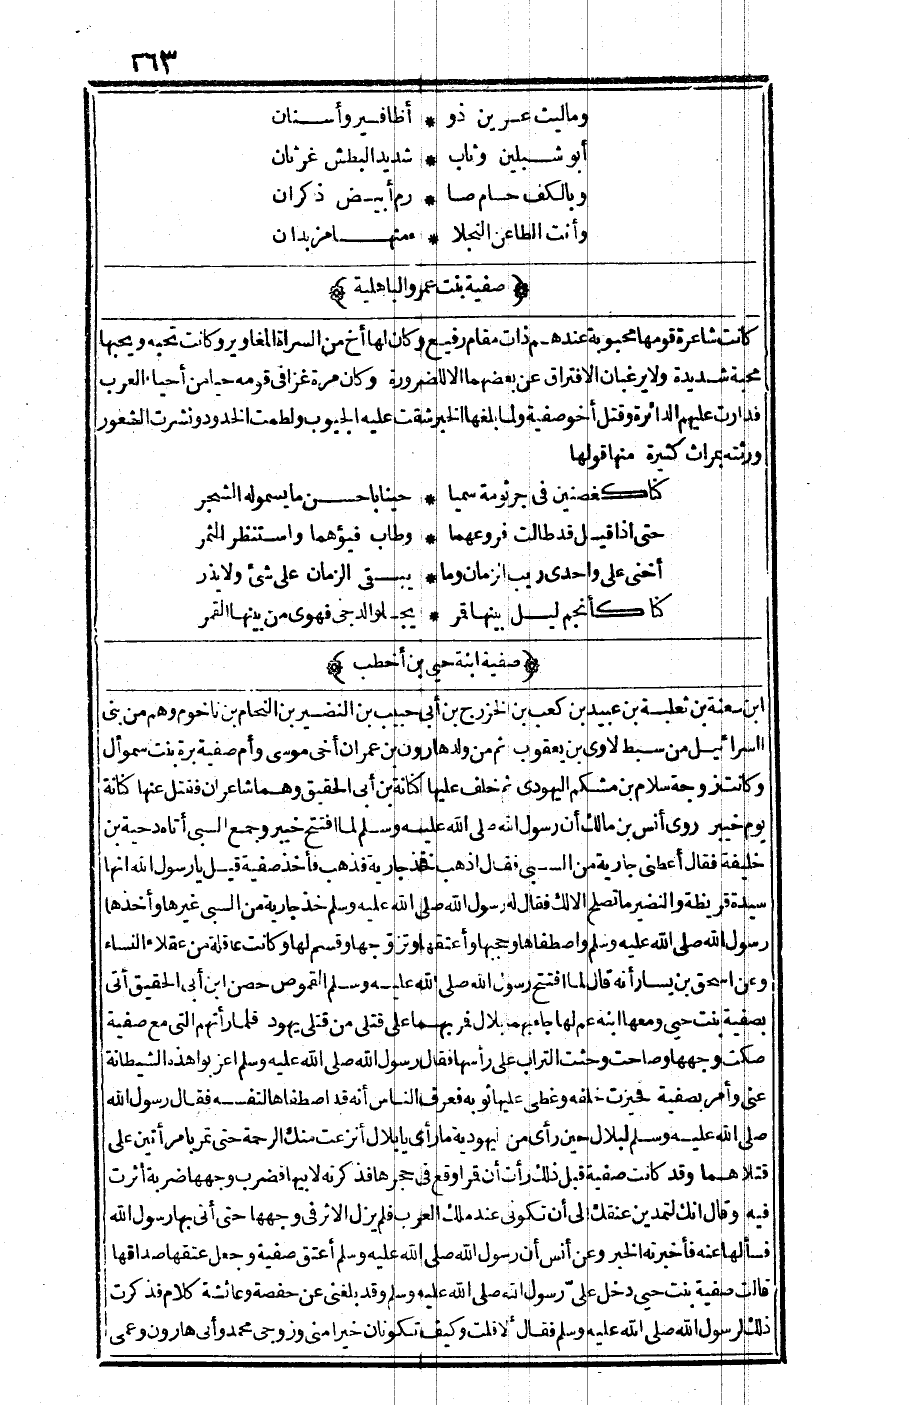 ٢٦٣
وماليث عرين ذو * أظافير وأسنان
أبو شبلين وثاب * شديد البطش غرثان
وبالكف حسام صا * رم أبيض ذكران
وأنت الطاعن النجلا * ء منها مزبدان
﴿ صفية بنت عمرو الباهلية ﴾
كانت شاعرة قومها محبوبة عندهم ذات مقام رفيع وكان لها أخ من السراة المغاوير وكانت تحبه ويحبها
محبة شديدة ولا يرغبان الافتراق عن بعضهما الا للضرورة وكان مرة غزا فى قومه حيا من أحياء العرب
فدارت عليهم الدائرة وقتل أخو صفية ولما بلغها الخبر شقت عليه الجيوب ولطمت الخدود ونشرت الشعور
ورثته بمراث كثيرة منها قولها
كنا كغصنين فى جرثومة سميا * حينا باحسن ما يسموله الشجر
حتى اذا قيل قد طالت فروعهما * وطاب فيؤهما واستنظر الثمر
أخنى على واحدى ريب الزمان وما * يبقى الزمان على شئ ولا يذر
كنا كأنجم ليل بينها قمر * يجلو الدجى فهوى من بينها القمر
﴿ صفية ابنة حيي بن أخطب ﴾
ابن سعنة بن ثعلبة بن عبيد بن كعب بن الخزرج بن أبى حبيب بن النضير بن النحام بن ناخوم وهم من بنى
اسرائيل من سبط لاوى بن يعقوب ثم من ولد هارون بن عمران أخى موسى وأم صفية برة بنت سموأل
وكانت زوجة سلام بن مشكم اليهودى ثم خلف عليها كنانة بن أبى الحقيق وهما شاعران فقتل عنها كنانة
يوم خيبر روى أنس بن مالك أن رسول الله صلى الله عليه وسلم لما افتتح خيبر وجمع السبى أتاه دحية بن
خليفة فقال أعطنى جارية من السبى فقال اذهب فخذ جارية فذهب فأخذ صفية قيل يا رسول الله انها
سيدة قريظة والنضير ما تصلح الا لك فقال له رسول الله صلى الله عليه وسلم خذ جارية من السبى غيرها وأخذها
رسول الله صلى الله عليه وسلم واصطفاها وحجبها وأعتقها وتزوجها وقسم لها وكانت عاقلة من عقلاء النساء
وعن اسحق بن يسار أنه قال لما افتتح رسول الله صلى الله عليه وسلم القموص حصن ابن أبى الحقيق أتى
بصفية بنت حيي ومعها ابنة عم لها جاء بهما بلال فمر بهما على قتلى من قتلى يهود فلما رأتهم التى مع صفية
صكت وجهها وصاحت وحثت التراب على رأسها فقال رسول الله صلى الله عليه وسلم اعزبوا هذه الشيطانة
عنى وأمر بصفية فحيزت خلفه وغطى عليها ثوبه فعرف الناس أنه قد اصطفاها لنفسه فقال رسول الله
صلى الله عليه وسلم لبلال حين رأى من اليهودية ما رأى يا بلال أنزعت منك الرحمة حتى تمر بامرأتين على
قتلاهما وقد كانت صفية قبل ذلك رأت أن قمرا وقع فى حجرها فذكرته لابيها فضرب وجهها ضربة أثرت
فيه وقال انك لتمدين عنقك الى أن تكونى عند ملك العرب فلم يزل الاثر فى وجهها حتى أتى بها رسول الله
فسألها عنه فأخبرته الخبر وعن أنس أن رسول الله صلى الله عليه وسلم أعتق صفية وجعل عتقها صداقها
قالت صفية بنت حيي دخل علىّ رسول الله صلى الله عليه وسلم وقد بلغنى عن حفصة وعائشة كلام فذكرت
ذلك لرسول الله صلى الله عليه وسلم فقال ألا قلت وكيف تكونان خيرا منى وزوجى محمد وأبى هارون وعمى